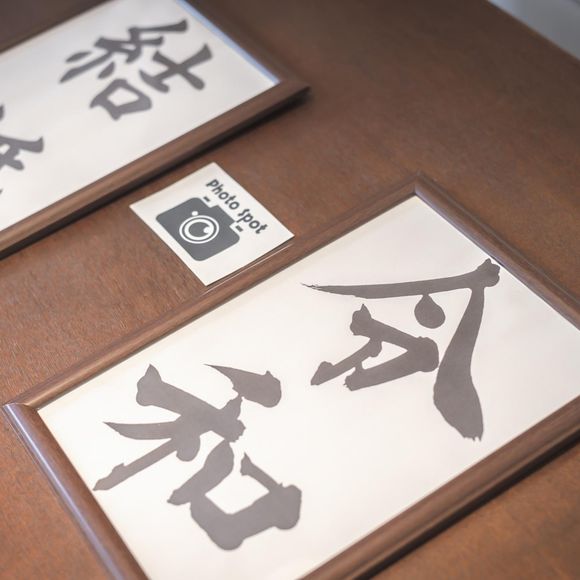 結
Photo Spot
令和